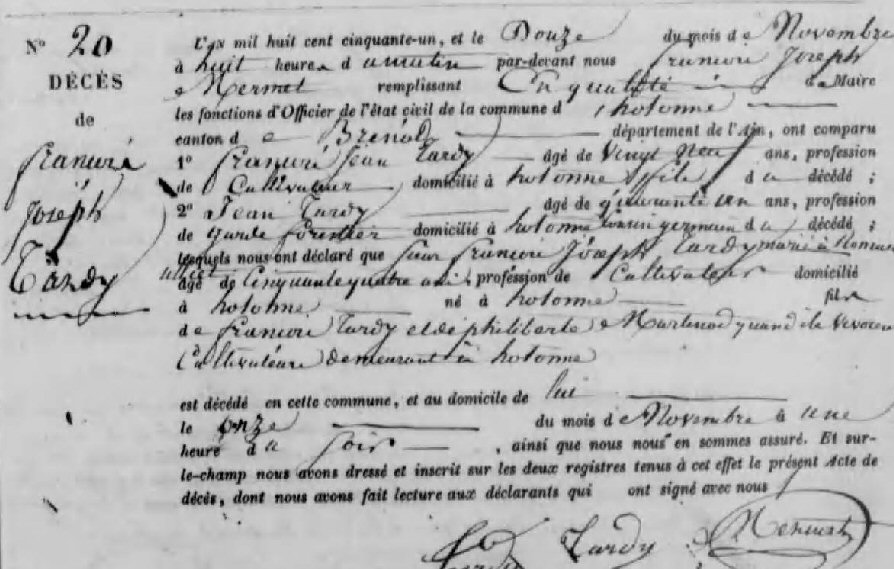 N° 20
DÉCÈS
de
françois
joseph
Tardy
L'an mil huit cent cinquante-un, et le Douze du mois de Novembre
à huit heures du matin par-devant nous françois joseph
Mermet remplissant En qualité de Maire
les fonctions d'Officier de l'état civil de la commune d hotonne
canton de Brénod département de l'Ain, ont comparu
1° françois Jean Tardy âgé de Vingt Neuf ans, profession
de Cultivateur domicilié à hotonne fils du décédé ;
2° Jean Tardy âgé de quarante un ans, profession
de garde forestier domicilié à hotonne Cousin germain du décédé ;
lesquels nous ont déclaré que françois Joseph Tardy marié à
âgé de Cinquante quatre ans, profession de Cultivateur domicilié
à hotonne né à hotonne fils
de françois Tardy et de philiberte Martinod quand ils vivoient
Cultivateurs demeurant à hotonne
est décédé en cette commune, et au domicile de lui
le onze du mois de Novembre à une
heure du soir , ainsi que nous nous en sommes assuré. Et sur-
le-champ nous avons dressé et inscrit sur les deux registres tenus à cet effet le présent Acte de
décès, dont nous avons fait lecture aux déclarants qui ont signé avec nous
Tardy Mermet